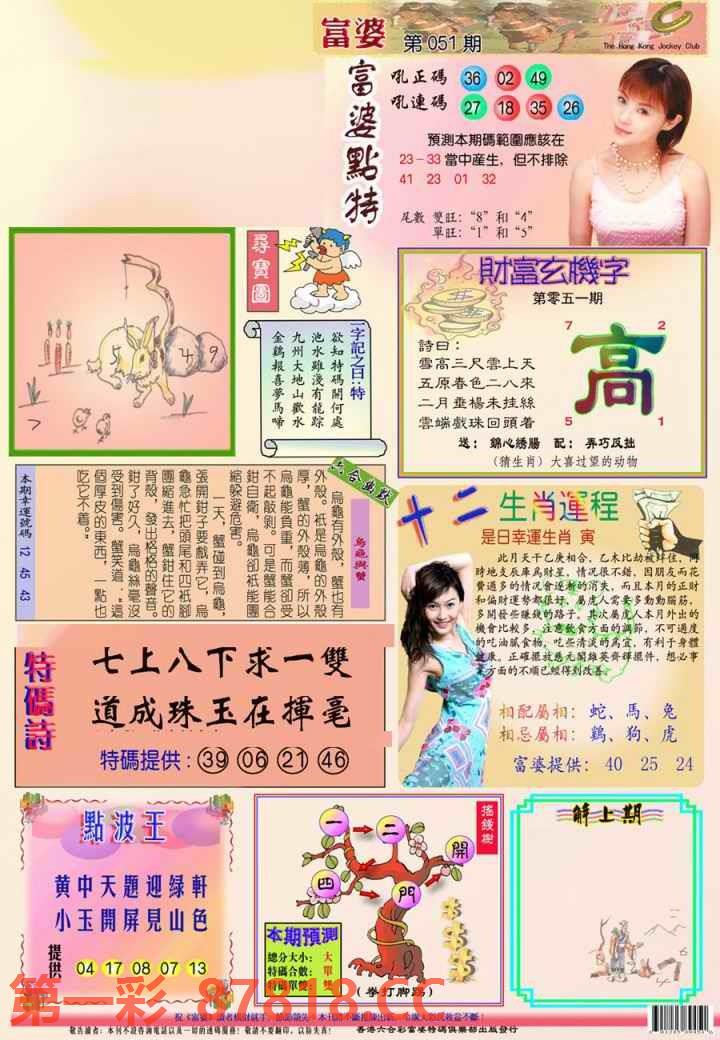 富婆 第051期
The Hong Kong Jockey Club
富婆點特
吼正碼 36 02 49
吼連碼 27 18 35 26
預測本期碼範圍應該在
23-33當中産生，但不排除
41 23 01 32
尾數 雙旺：“8”和“4”
單旺：“1”和“5”
5 4 9
7
尋寶圖
一字記之曰：特
欲知特碼開何處
池水雖淺有龍踪
九州大地山歡水
金鷄報喜夢馬啼
財富玄機字
第零五一期
詩曰：
雪高三尺雲上天
五原春色二八來
二月垂楊未挂絲
雲端戲珠回頭着
7 2
高
5 1
送：錦心綉腸 配：弄巧反拙
（猜生肖）大喜过望的动物
六合幽默
烏龜與蟹
烏龜有外殼，蟹也有
外殼。祇是烏龜的外殼
厚，蟹的外殼薄，所以
烏龜能負重，而蟹却受
不起敲剥。可是蟹能合
鉗自衛，烏龜却祇能團
縮躲避危害。
一天，蟹碰到烏龜，
張開鉗子要戲弄它，烏
龜急忙把頭尾和四衹脚
團縮進去，蟹鉗住它的
背殼，發出格格的聲音。
鉗了好久，烏龜絲毫没
受到傷害。蟹笑道：“這
個厚皮的東西，一點也
吃它不着。”
本期幸運號碼 12 45 43
十二生肖運程
是日幸運生肖 寅
此月天干乙庚相合，乙木比劫被絆住，同
時地支辰庫爲財星，情况很不錯，因朋友而花
費過多的情况會逐漸的消失，而且本月的正財
和偏財運勢都很好，屬虎人需要多動動腦筋，
多開發些賺錢的路子。其次屬虎人本月外出的
機會比較多，注意飲食方面的調節，不可過度
的吃油膩食物，吃些清淡的爲宜，有利于身體
健康。正確擺放慈元閣雄英齊輝擺件，想必事
業方面的不順已經得到改善。
相配屬相：蛇、馬、兔
相忌屬相：鷄、狗、虎
富婆提供：40 25 24
特碼詩
七上八下求一雙
道成珠玉在揮毫
特碼提供：39 06 21 46
點波王
黄中天題迎绿軒
小玉開屏見山色
提供 04 17 08 07 13
搖錢樹
一 二 開
四 門
本期預測
總分大小：大
特碼合數：單
特碼單雙：雙
（拳打脚踢）
解上期
第一彩 87818.CC
香港六合彩富婆特碼俱樂部出版發行